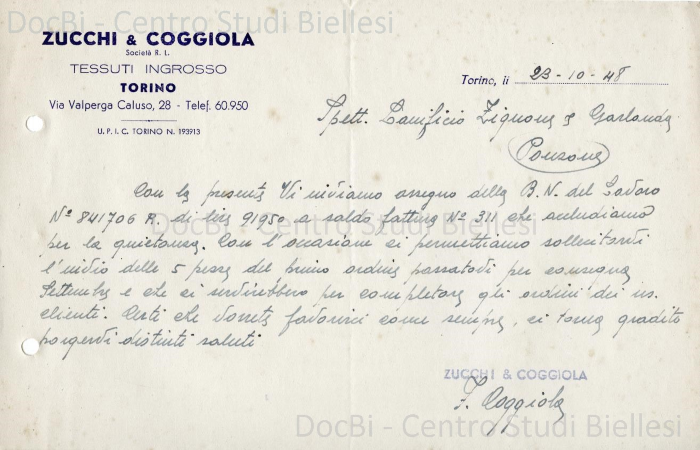 DocBi - Centro Studi Biellesi
ZUCCHI & COGGIOLA
Società R. L.
TESSUTI INGROSSO
TORINO
Via Valperga Caluso, 28 - Telef. 60.950
U. P. I. C. TORINO N. 193913
Torino, li 23-10-48
Spett. Lanificio Zignone & Garlanda
Ponzone
Con la presente Vi inviamo assegno della B.N. del Lavoro
Nº 841706 R. di lire 91950 a saldo fattura Nº 311 che accludiamo
DocBi - Centro Studi Biellesi
per la quietanza. Con l'occasione ci permettiamo sollecitarvi
l'invio delle 5 pezze del primo ordine passatovi per consegna
Settembre e che ci servirebbero per completare gli ordini dei ns.
clienti. Certi che vorrete favorirci come sempre, ci torna gradito
porgervi distinti saluti
ZUCCHI & COGGIOLA
F. Coggiola
DocBi - Centro Studi Biellesi